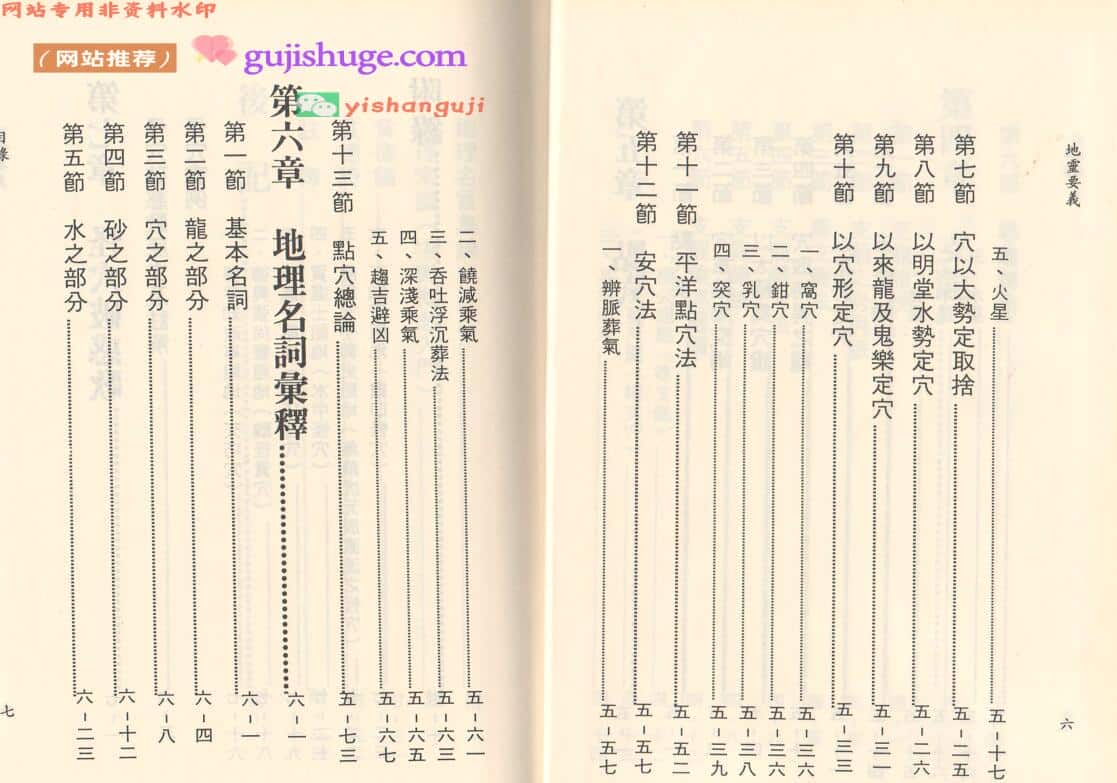 网站专用非资料水印
(网站推荐)
gujishuge.com
yishanguji
地靈要義
六
五、火星 五-十七
第七節 穴以大勢定取捨 五-二五
第八節 以明堂水勢定穴 五-二六
第九節 以來龍及鬼樂定穴 五-三一
第十節 以穴形定穴 五-三三
一、窩穴 五-三六
二、鉗穴 五-三六
三、乳穴 五-三八
四、突穴 五-三九
第十一節 平洋點穴法 五-五二
第十二節 安穴法 五-五七
一、辨脈葬氣 五-五七
二、饒減乘氣 五-六一
三、吞吐浮沉葬法 五-六三
四、深淺乘氣 五-六五
五、趨吉避凶 五-六七
第十三節 點穴總論 五-七三
第六章 地理名詞彙釋 六-一
第一節 基本名詞 六-一
第二節 龍之部分 六-四
第三節 穴之部分 六-八
第四節 砂之部分 六-十二
第五節 水之部分 六-二三
目錄
七